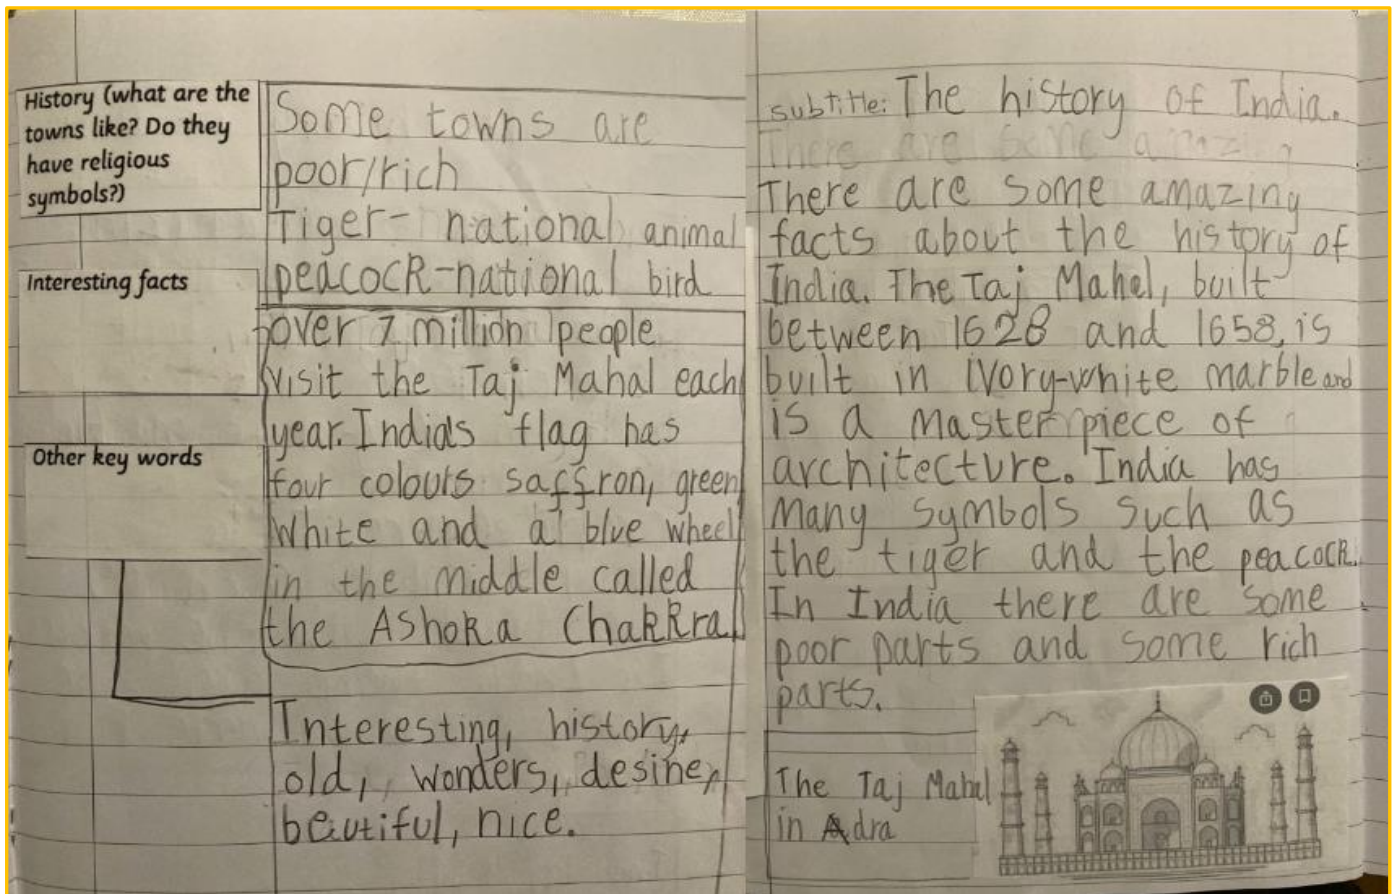 History (what are the
towns like? Do they
have religious
symbols?)
Some towns are
poor/rich
Tiger- national animal
peacock-national bird
Interesting facts
over 7 million people
visit the Taj Mahal each
year. India's flag has
four colours saffron, green
white and a blue wheel
in the middle called
the Ashoka Chakkra
Other key words
Interesting, history,
old, wonders, desine,
beutiful, nice.
subtitle: The history of India.
There are some amazing
There are some amazing
facts about the history of
India. The Taj Mahel, built
between 1628 and 1658, is
built in Ivory-white marble and
is a master piece of
architecture. India has
many symbols such as
the tiger and the peacock.
In India there are some
poor parts and some rich
parts.
The Taj Mahal
in Adra